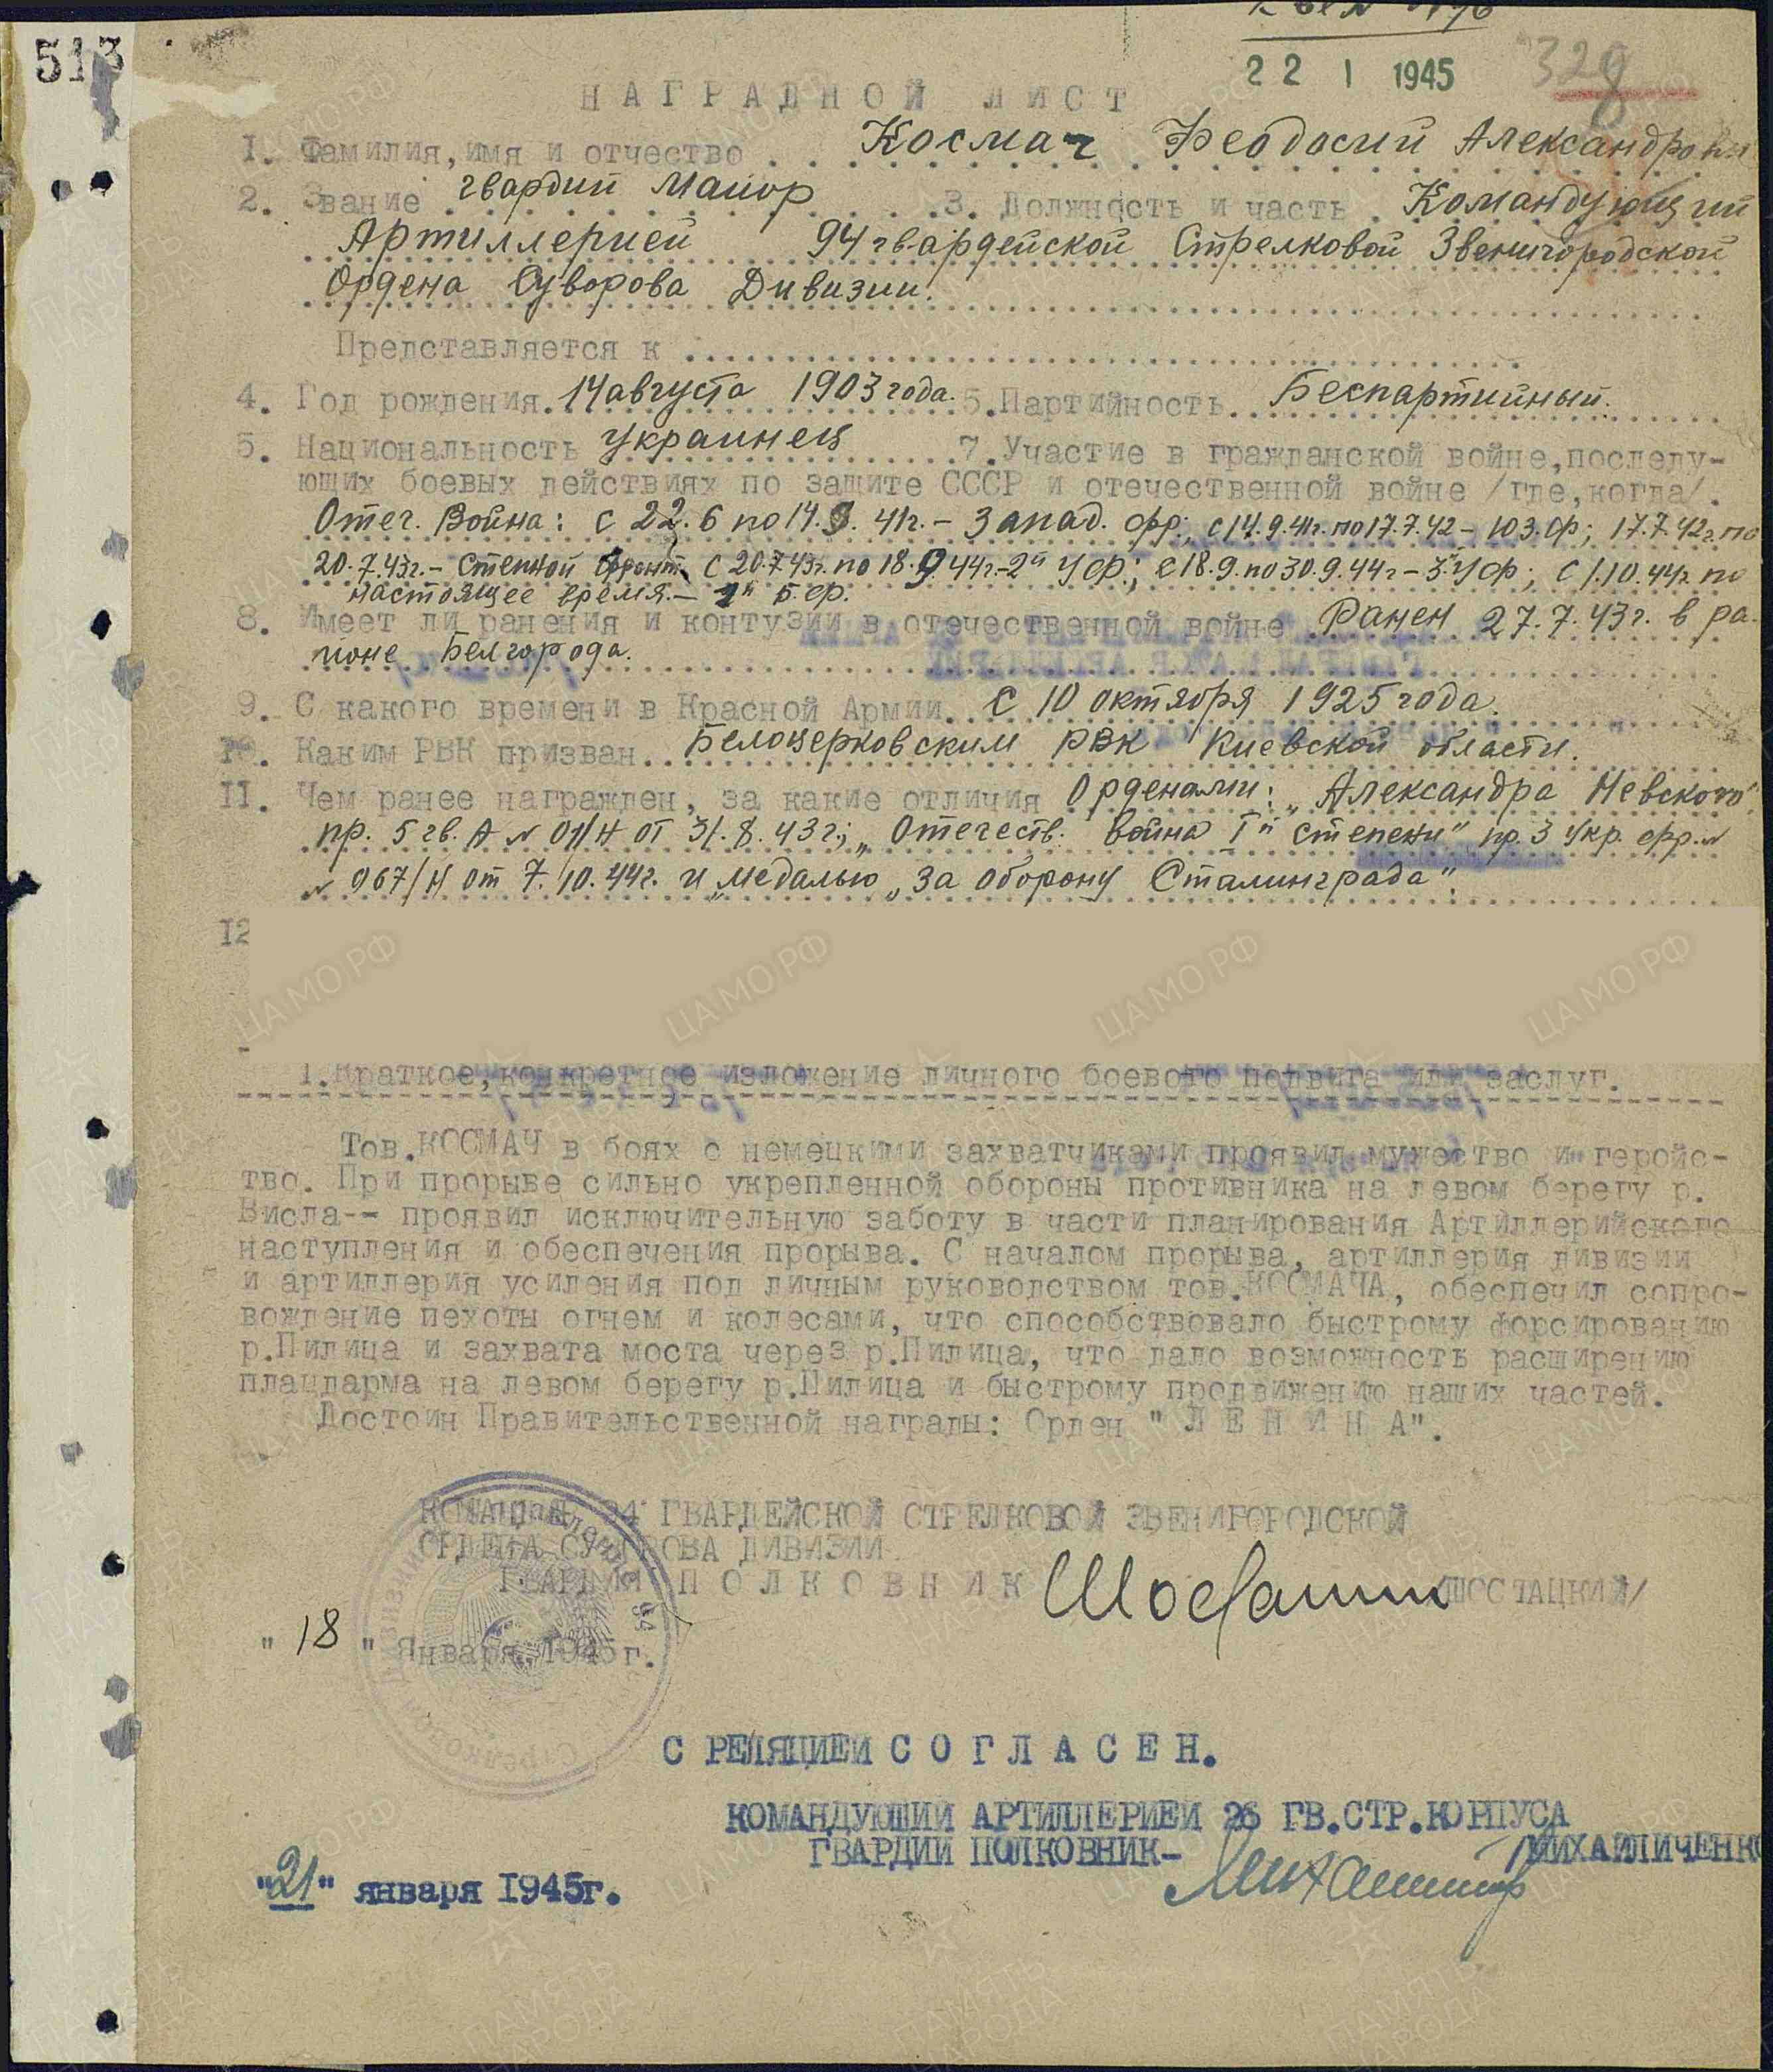 513
22 1 1945
328
НАГРАДНОЙ ЛИСТ
1. Фамилия, имя и отчество . . Космач Феодосий Александрович
2. Звание гвардии Майор 3. Должность и часть . Командующий
Артиллерией 94 гвардейской Стрелковой Звенигородской
Ордена Суворова Дивизии.
Представляется к
4. Год рождения. 14 августа 1903 года. 5. Партийность Беспартийный.
5. Национальность украинец 7. Участие в гражданской войне, последу-
ющих боевых действиях по защите СССР и отечественной войне /где, когда/.
Отеч. Война: с 22.6 по 14.9.41г. – Запад. фр.; с 14.9.41г. по 17.7.42 – ЮЗ.ф; 17.7.42г. по
20.7.43г. – Степной фронт с 20.7.43г. по 18.9.44г. – 2й Уф.; с 18.9. по 30.9.44г – 3й Уф; с 1.10.44г. по
настоящее время. – 1й Б.ф.
8. Имеет ли ранения и контузии в отечественной войне Ранен 27.7.43г. в ра-
ионе Белгорода.
9. С какого времени в Красной Армии. С 10 октября 1925 года.
10. Каким РВК призван. Белоцерковским РВК Киевской области.
11. Чем ранее награжден, за какие отличия Орденами: „Александра Невского"
пр. 5 гв. А № 01/Н от 31.8.43г.; „Отечеств. война Iй степени" пр. 3 Укр. фр. №
№ 967/Н от 7.10.44г. и медалью „За оборону Сталинграда".
12
1. Краткое, конкретное изложение личного боевого подвига или заслуг.
Тов. КОСМАЧ в боях с немецкими захватчиками проявил мужество и геройс-
тво. При прорыве сильно укрепленной обороны противника на левом берегу р.
Висла-- проявил исключительную заботу в части планирования Артиллерийского
наступления и обеспечения прорыва. С началом прорыва, артиллерия дивизии
и артиллерия усиления под личным руководством тов. КОСМАЧА, обеспечил сопро-
вождение пехоты огнем и колесами, что способствовало быстрому форсированию
р.Пилица и захвата моста через р.Пилица, что дало возможность расширению
плацдарма на левом берегу р.Пилица и быстрому продвижению наших частей.
Достоин Правительственной награды: Орден "ЛЕНИНА".
КОМАНДИР 94 ГВАРДЕЙСКОЙ СТРЕЛКОВОЙ ЗВЕНИГОРОДСКОЙ
ОРДЕНА СУВОРОВА ДИВИЗИИ
ГВАРДИИ ПОЛКОВНИК /ШОСТАЦКИЙ/
" 18 " Января 1945г.
С РЕЛЯЦИЕЙ СОГЛАСЕН.
КОМАНДУЮЩИЙ АРТИЛЛЕРИЕЙ 26 ГВ.СТР.КОРПУСА
ГВАРДИИ ПОЛКОВНИК- /МИХАЙЛИЧЕНКО
"21" января 1945г.